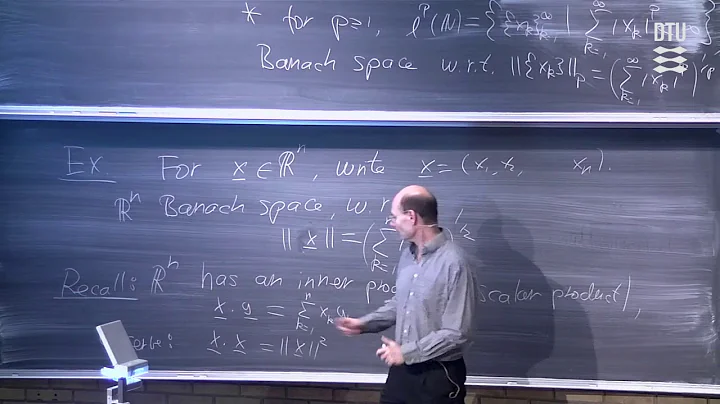 * for p≥1, ℓ^p(N) = { {x_k}_{k=1}^∞ | ∑_{k=1}^∞ |x_k|^p
DTU
Banach space w.r.t. ||{x_k}||_p = (∑_{k=1}^∞ |x_k|^p)^{1/p}
Ex. For x ∈ ℝ^n, write x = (x_1, x_2, x_n).
ℝ^n Banach space, w.r
||x|| = (∑_{k=1}^n )^{1/2}
Recall: ℝ^n has an inner pro scalar product),
x · y = ∑_{k=1}^n x_k y
x · x = ||x||^2